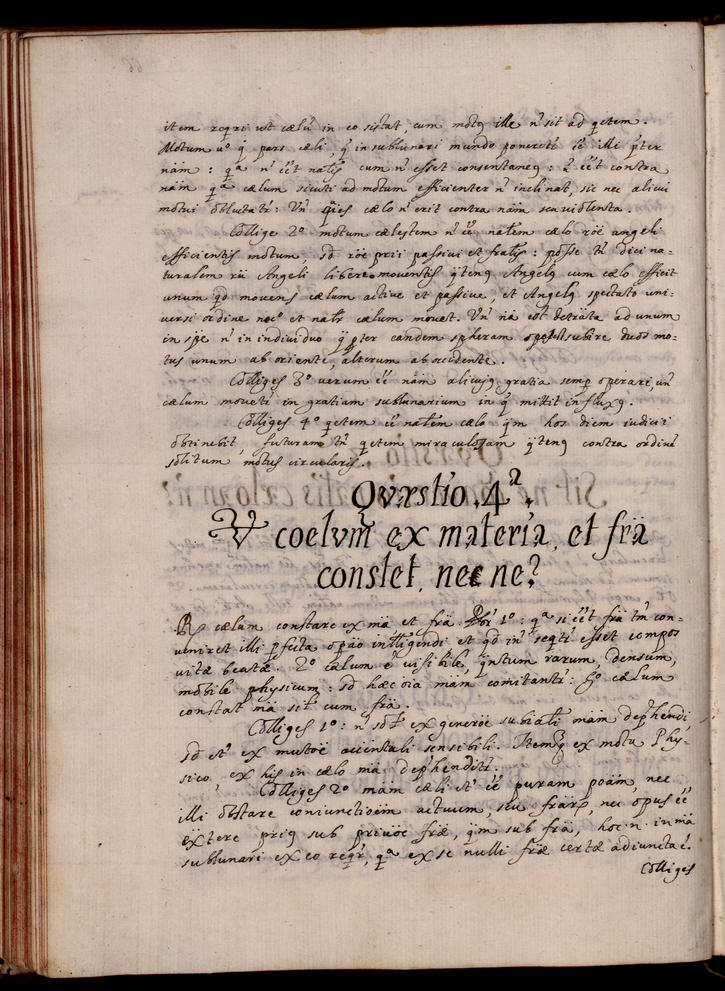 item reqri ut cælũ in eo sistat, cum motq ille ñ sit ad qetem.
Motum uº q pars cæli, q in sublunari mundo poneretr illi pter
nãm: qª ñ eet natlis cum ñ esset consentaneq: 2 eet contra
nãm qª cælum sicuti ad motum efficienter ñ inclinat, sic nec alicui
motui obluctatr: Uñ qies cælo ñ erit contra nãm seu uiolenta.
Collige 2º motum cælestem ñ eē natlem cælo röe angeli
efficientis motum, sd röe prii passiui et frãlis: posse tñ dici na=
turalem Angeli libere mouentis qtenq Angelq cum cælo efficit
unum qd mouens cælum actiue et passiue, et Angelq spectato uni=
uersi ordine necº et natr cælum mouet. Uñ ad unum
in spe ñ in indiuiduo q pter eandem spheram subire duos mo=
tus unum ab oriente, alterum ab occidente.
Colliges 3º uerum eē nãm alicujq gratia semp operari, uñ
cælum moueti in gratiam sublunarium in q mittit influxq.
Colliges 4º qetem eē natlem cælo qm hos diem iudicii
obtinebit, futuram tñ qetem miraculosam qtenq contra ordinē
solitum motus circularis.
Qvæstio. 4ª.
V coelvm ex materia, et frã
constet, nec ne?
R cælum constare ex mã et frã. Pbr 1º: qª si eet frã tm con=
ueniret illi pfecta opão intlligendi et qd in seqti esset compos
uitæ beatæ. 2º cælum ē uisibile, qntum rarum, densum,
mobile physicum: sd hæc oia mãm comitantr: gº cælum
constat mã sil cum frã.
Colliges 1º: ñ sol ex generõe subiali mãm dephendi
sd et ex mutõe accintali sensibili. Itemq ex motu Phy=
sico, ex his in cælo mã dephenditr.
Colliges 2º mãm cæli et eē puram poãm, nec
illi obstare coniunctioem actuum, seu frãrp, nec opus eē
extere priq sub priuõe fræ, qm sub frã, hoc .n. in mã
sublunari ex eo reqr, qª ex se nulli fræ certæ adiuncta ē.
Colliges